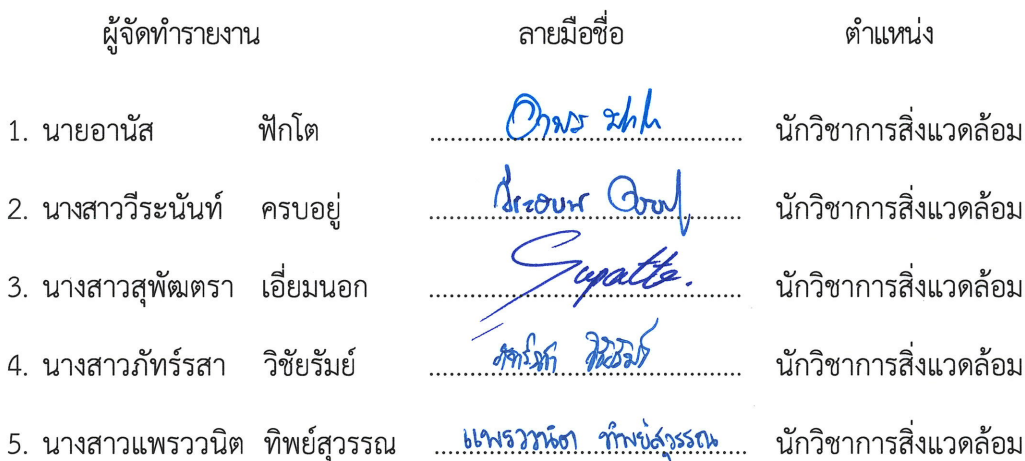 ผู้จัดทำรายงาน ลายมือชื่อ ตำแหน่ง
1. นายอานัส ฟักโต ........ นักวิชาการสิ่งแวดล้อม
2. นางสาววีระนันท์ ครบอยู่ ........ นักวิชาการสิ่งแวดล้อม
3. นางสาวสุพัฒตรา เอี่ยมนอก ........ นักวิชาการสิ่งแวดล้อม
4. นางสาวภัทร์รสา วิชัยรัมย์ ........ นักวิชาการสิ่งแวดล้อม
5. นางสาวแพรววนิต ทิพย์สุวรรณ แพรววนิต ทิพย์สุวรรณ นักวิชาการสิ่งแวดล้อม